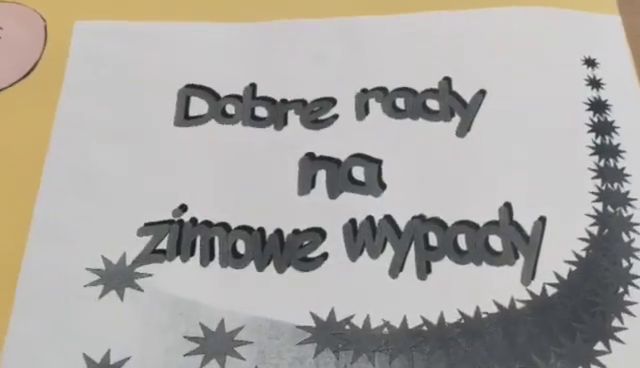 Dobre rady
na
zimowe wypady